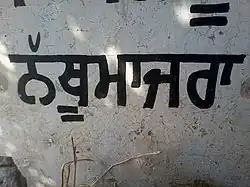 ਨੱਥੂਮਾਜਰਾ